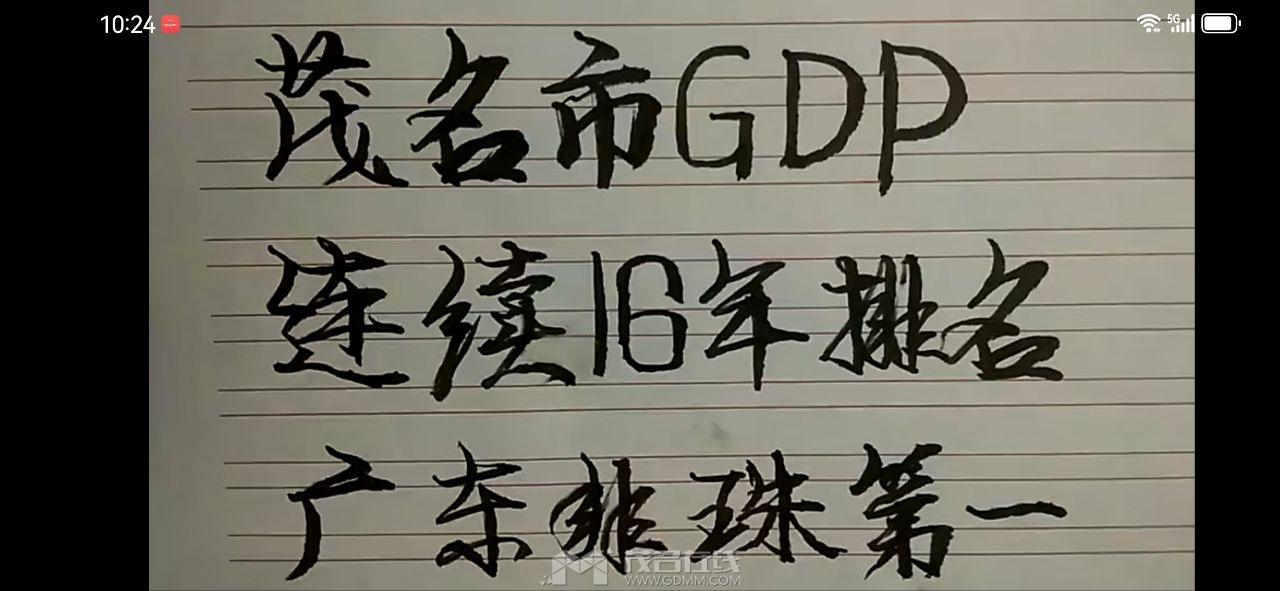 10:24
5G
茂名市GDP
连续16年排名
广东非珠第一
茂名在线
WWW.GDMM.COM